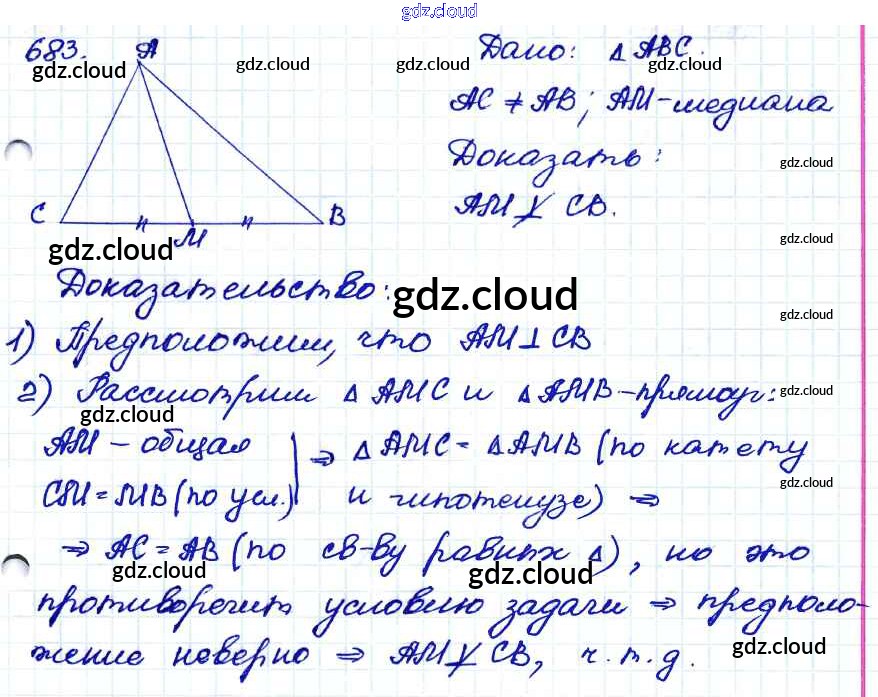 gdz.cloud
683. A Дано: △ ABC.
gdz.cloud gdz.cloud gdz.cloud gdz.cloud
AC ≠ AB; AM-медиана
Доказать: gdz.cloud
C M B AM ⊥̸ CB.
gdz.cloud gdz.cloud
Доказательство: gdz.cloud gdz.cloud
1) Предположим, что AM ⊥ CB
2) Рассмотрим △ AMC и △ AMB-прямоуг: gdz.cloud
gdz.cloud
AM - общая ⇒ △ AMC = △ AMB (по катету
CM = MB (по усл.) и гипотенузе) ⇒ gdz.cloud
⇒ AC = AB (по св-ву равных △), но это
gdz.cloud gdz.cloud
противоречит условию задачи ⇒ предполо-
жение неверно ⇒ AM ⊥̸ CB, ч.т.д. gdz.cloud